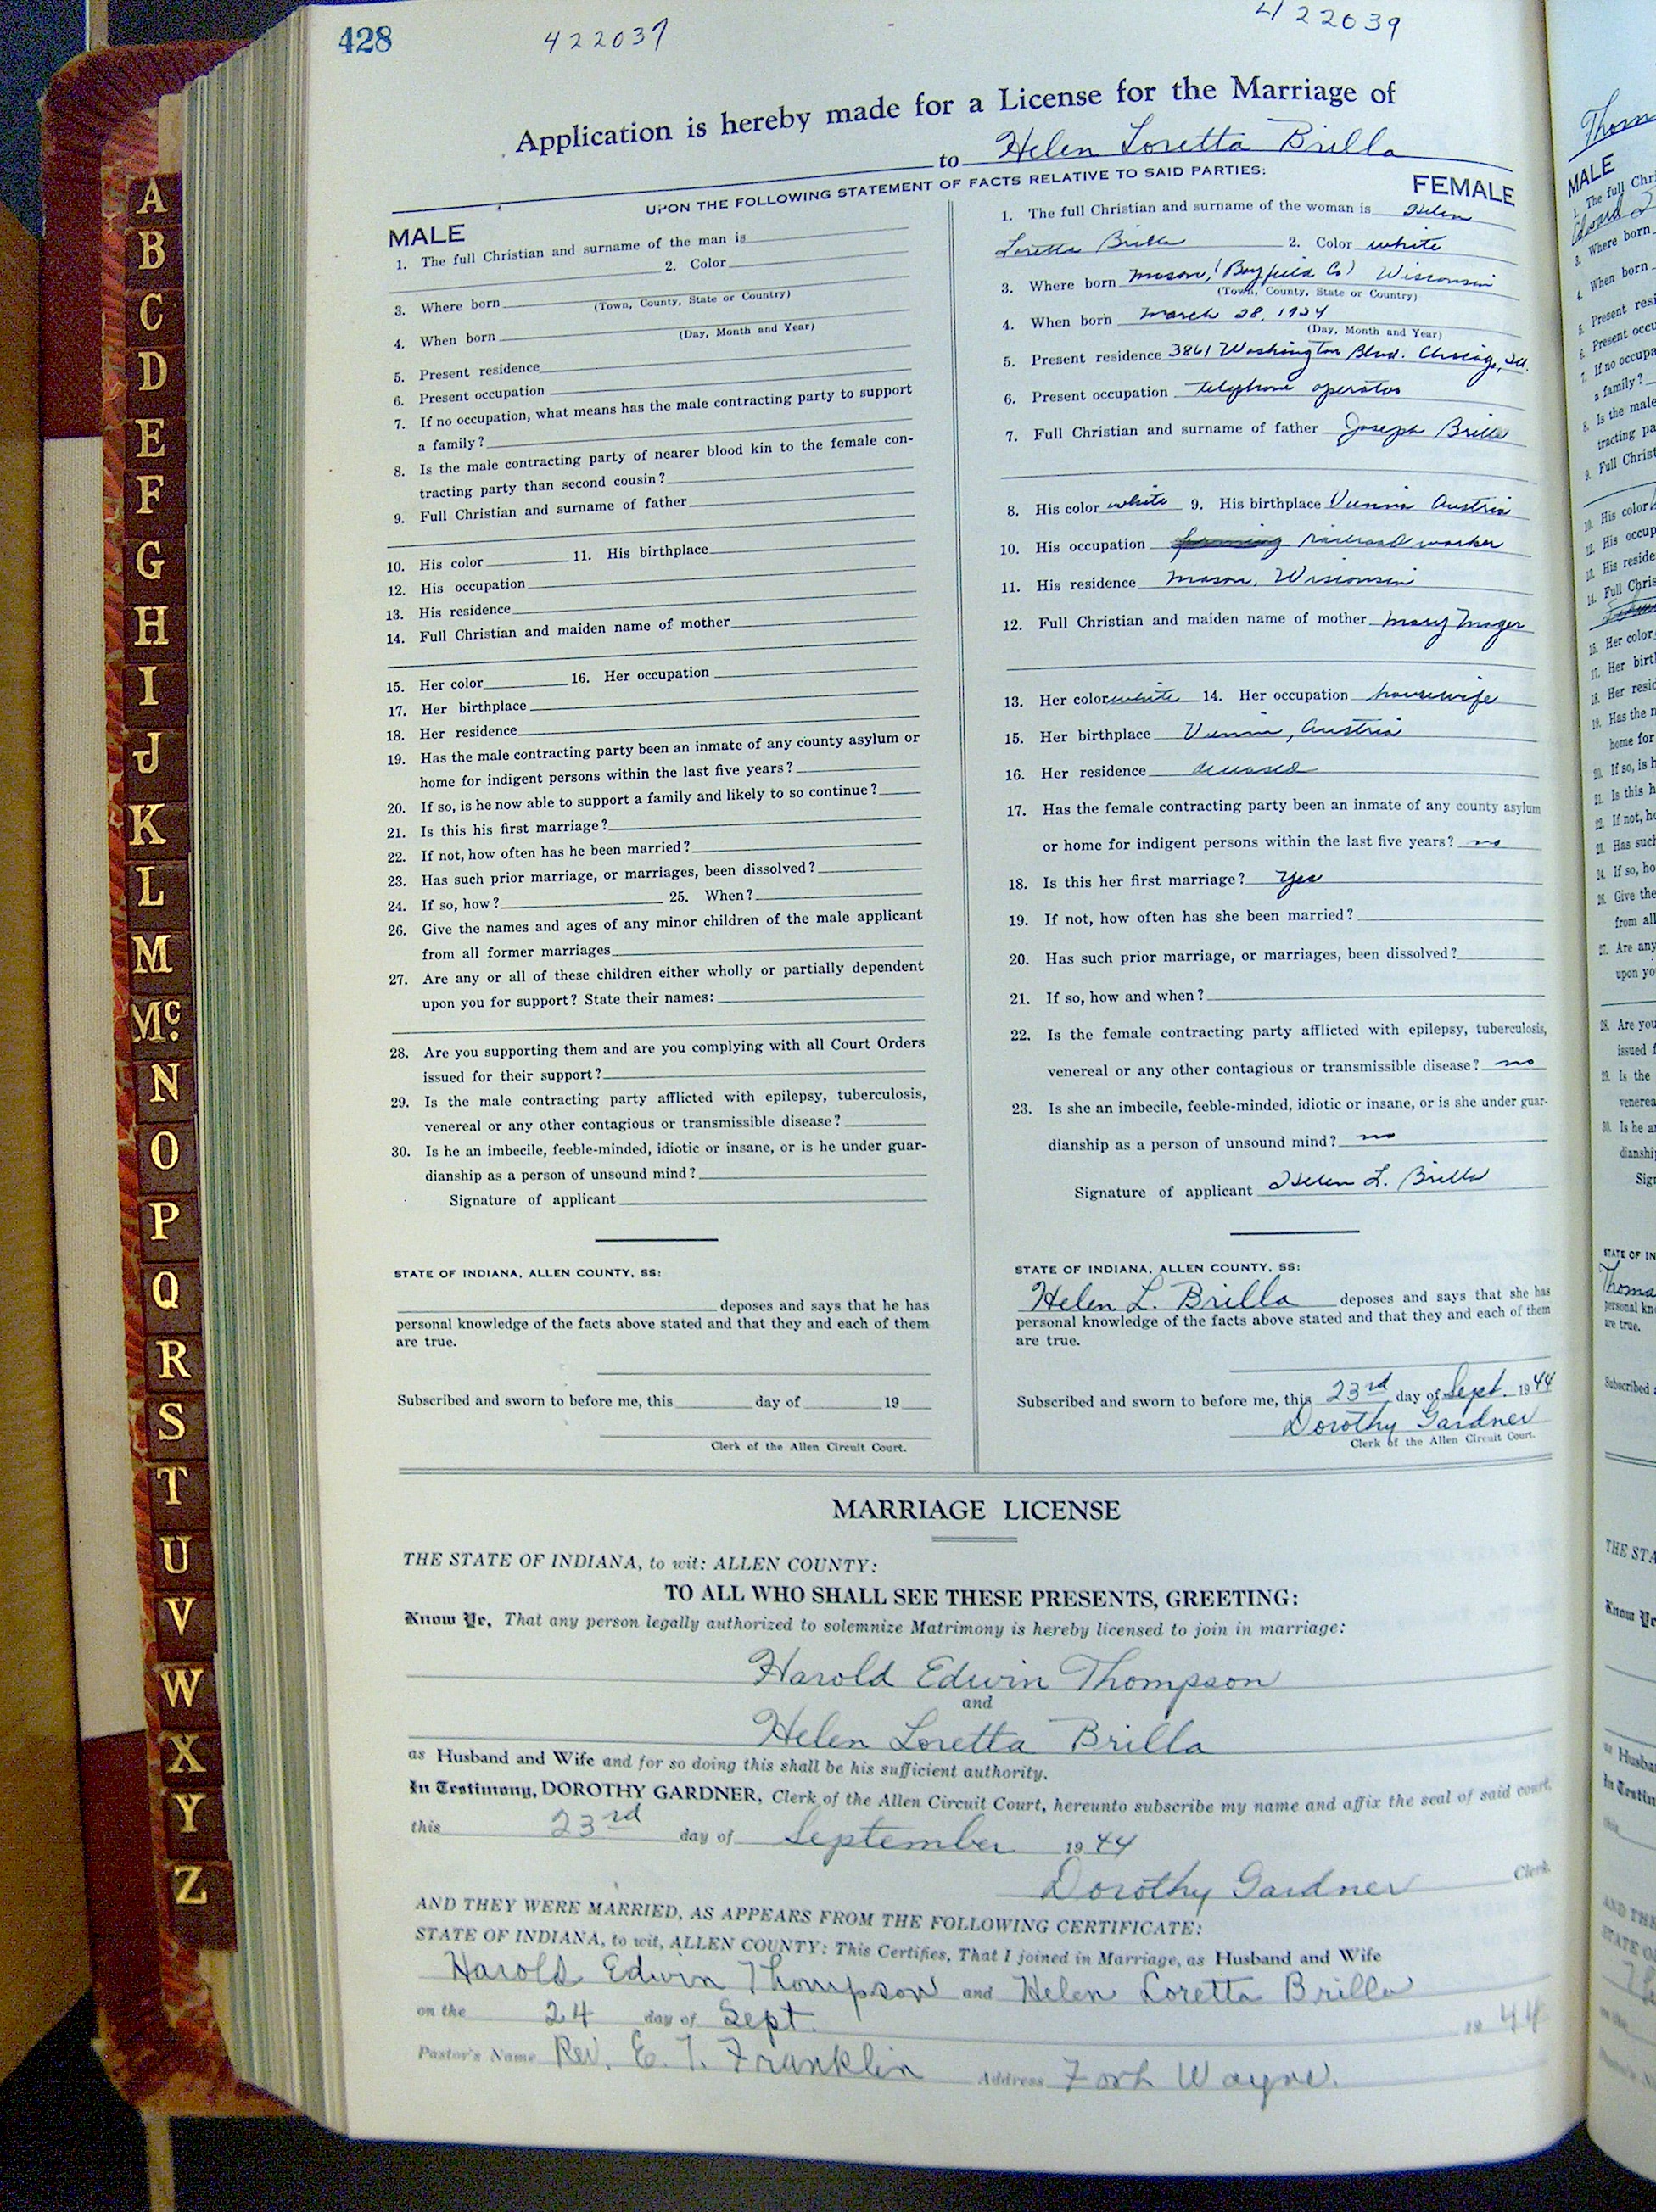 428
422039
422039
Application is hereby made for a License for the Marriage of
to Helen Loretta Brilla
UPON THE FOLLOWING STATEMENT OF FACTS RELATIVE TO SAID PARTIES:
MALE
1. The full Christian and surname of the man is
2. Color
3. Where born
(Town, County, State or Country)
4. When born
(Day, Month and Year)
5. Present residence
6. Present occupation
7. If no occupation, what means has the male contracting party to support
a family?
8. Is the male contracting party of nearer blood kin to the female con-
tracting party than second cousin?
9. Full Christian and surname of father
10. His color 11. His birthplace
12. His occupation
13. His residence
14. Full Christian and maiden name of mother
15. Her color 16. Her occupation
17. Her birthplace
18. Her residence
19. Has the male contracting party been an inmate of any county asylum or
home for indigent persons within the last five years?
20. If so, is he now able to support a family and likely to so continue?
21. Is this his first marriage?
22. If not, how often has he been married?
23. Has such prior marriage, or marriages, been dissolved?
24. If so, how? 25. When?
26. Give the names and ages of any minor children of the male applicant
from all former marriages
27. Are any or all of these children either wholly or partially dependent
upon you for support? State their names:
28. Are you supporting them and are you complying with all Court Orders
issued for their support?
29. Is the male contracting party afflicted with epilepsy, tuberculosis,
venereal or any other contagious or transmissible disease?
30. Is he an imbecile, feeble-minded, idiotic or insane, or is he under guar-
dianship as a person of unsound mind?
Signature of applicant
STATE OF INDIANA, ALLEN COUNTY, SS:
deposes and says that he has
personal knowledge of the facts above stated and that they and each of them
are true.
Subscribed and sworn to before me, this day of 19
Clerk of the Allen Circuit Court.
FEMALE
1. The full Christian and surname of the woman is Helen
Loretta Brilla 2. Color white
3. Where born Mason, (Bayfield Co) Wisconsin
(Town, County, State or Country)
4. When born March 28, 1924
(Day, Month and Year)
5. Present residence 3861 Washington Blvd. Chicago, Ill.
6. Present occupation telephone operator
7. Full Christian and surname of father Joseph Brilla
8. His color white 9. His birthplace Vienna Austria
10. His occupation railroad worker
11. His residence Mason, Wisconsin
12. Full Christian and maiden name of mother Mary Mager
13. Her color white 14. Her occupation housewife
15. Her birthplace Vienna, Austria
16. Her residence deceased
17. Has the female contracting party been an inmate of any county asylum
or home for indigent persons within the last five years? no
18. Is this her first marriage? Yes
19. If not, how often has she been married?
20. Has such prior marriage, or marriages, been dissolved?
21. If so, how and when?
22. Is the female contracting party afflicted with epilepsy, tuberculosis,
venereal or any other contagious or transmissible disease? no
23. Is she an imbecile, feeble-minded, idiotic or insane, or is she under guar-
dianship as a person of unsound mind? no
Signature of applicant Helen L. Brilla
STATE OF INDIANA, ALLEN COUNTY, SS:
Helen L. Brilla deposes and says that she has
personal knowledge of the facts above stated and that they and each of them
are true.
Subscribed and sworn to before me, this 23rd day of Sept. 1944
Dorothy Gardner
Clerk of the Allen Circuit Court.
MARRIAGE LICENSE
THE STATE OF INDIANA, to wit: ALLEN COUNTY:
TO ALL WHO SHALL SEE THESE PRESENTS, GREETING:
Know Ye, That any person legally authorized to solemnize Matrimony is hereby licensed to join in marriage:
Harold Edwin Thompson
and
Helen Loretta Brilla
as Husband and Wife and for so doing this shall be his sufficient authority.
In Testimony, DOROTHY GARDNER, Clerk of the Allen Circuit Court, hereunto subscribe my name and affix the seal of said court,
this 23rd day of September 1944
Dorothy Gardner Clerk
AND THEY WERE MARRIED, AS APPEARS FROM THE FOLLOWING CERTIFICATE:
STATE OF INDIANA, to wit, ALLEN COUNTY: This Certifies, That I joined in Marriage, as Husband and Wife
Harold Edwin Thompson and Helen Loretta Brilla
on the 24 day of Sept. 1944
Pastor's Name Rev. E. T. Franklin Address Fort Wayne.
A
B
C
D
E
F
G
H
I
J
K
L
M
Mc.
N
O
P
Q
R
S
T
U
V
W
X
Y
Z